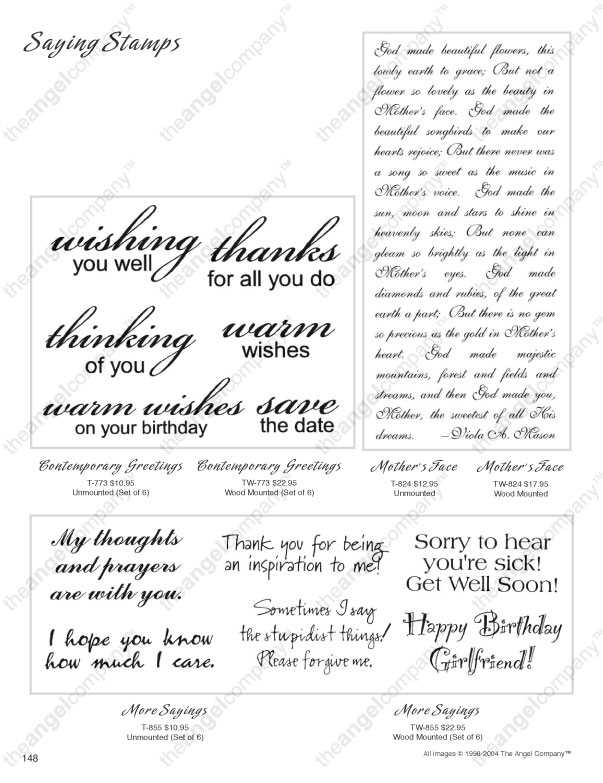 Saying Stamps
God made beautiful flowers, this
lowly earth to grace; But not a
flower so lovely as the beauty in
Mother's face. God made the
beautiful songbirds to make our
hearts rejoice; But there never was
a song so sweet as the music in
Mother's voice. God made the
sun, moon and stars to shine in
heavenly skies; But none can
gleam so brightly as the light in
Mother's eyes. God made
diamonds and rubies, of the great
earth a part; But there is no gem
so precious as the gold in Mother's
heart. God made majestic
mountains, forest and fields and
streams, and then God made you,
Mother, the sweetest of all His
dreams. –Viola A. Mason
wishing
you well
thanks
for all you do
thinking
of you
warm
wishes
warm wishes
on your birthday
save
the date
Contemporary Greetings
T-773 $10.95
Unmounted (Set of 6)
Contemporary Greetings
TW-773 $22.95
Wood Mounted (Set of 6)
Mother's Face
T-824 $12.95
Unmounted
Mother's Face
TW-824 $17.95
Wood Mounted
My thoughts
and prayers
are with you.
Thank you for being
an inspiration to me!
Sorry to hear
you're sick!
Get Well Soon!
I hope you know
how much I care.
Sometimes I say
the stupidist things!
Please forgive me.
Happy Birthday
Girlfriend!
More Sayings
T-855 $10.95
Unmounted (Set of 6)
More Sayings
TW-855 $22.95
Wood Mounted (Set of 6)
148
All images © 1998-2004 The Angel Company™
theangelcompany™